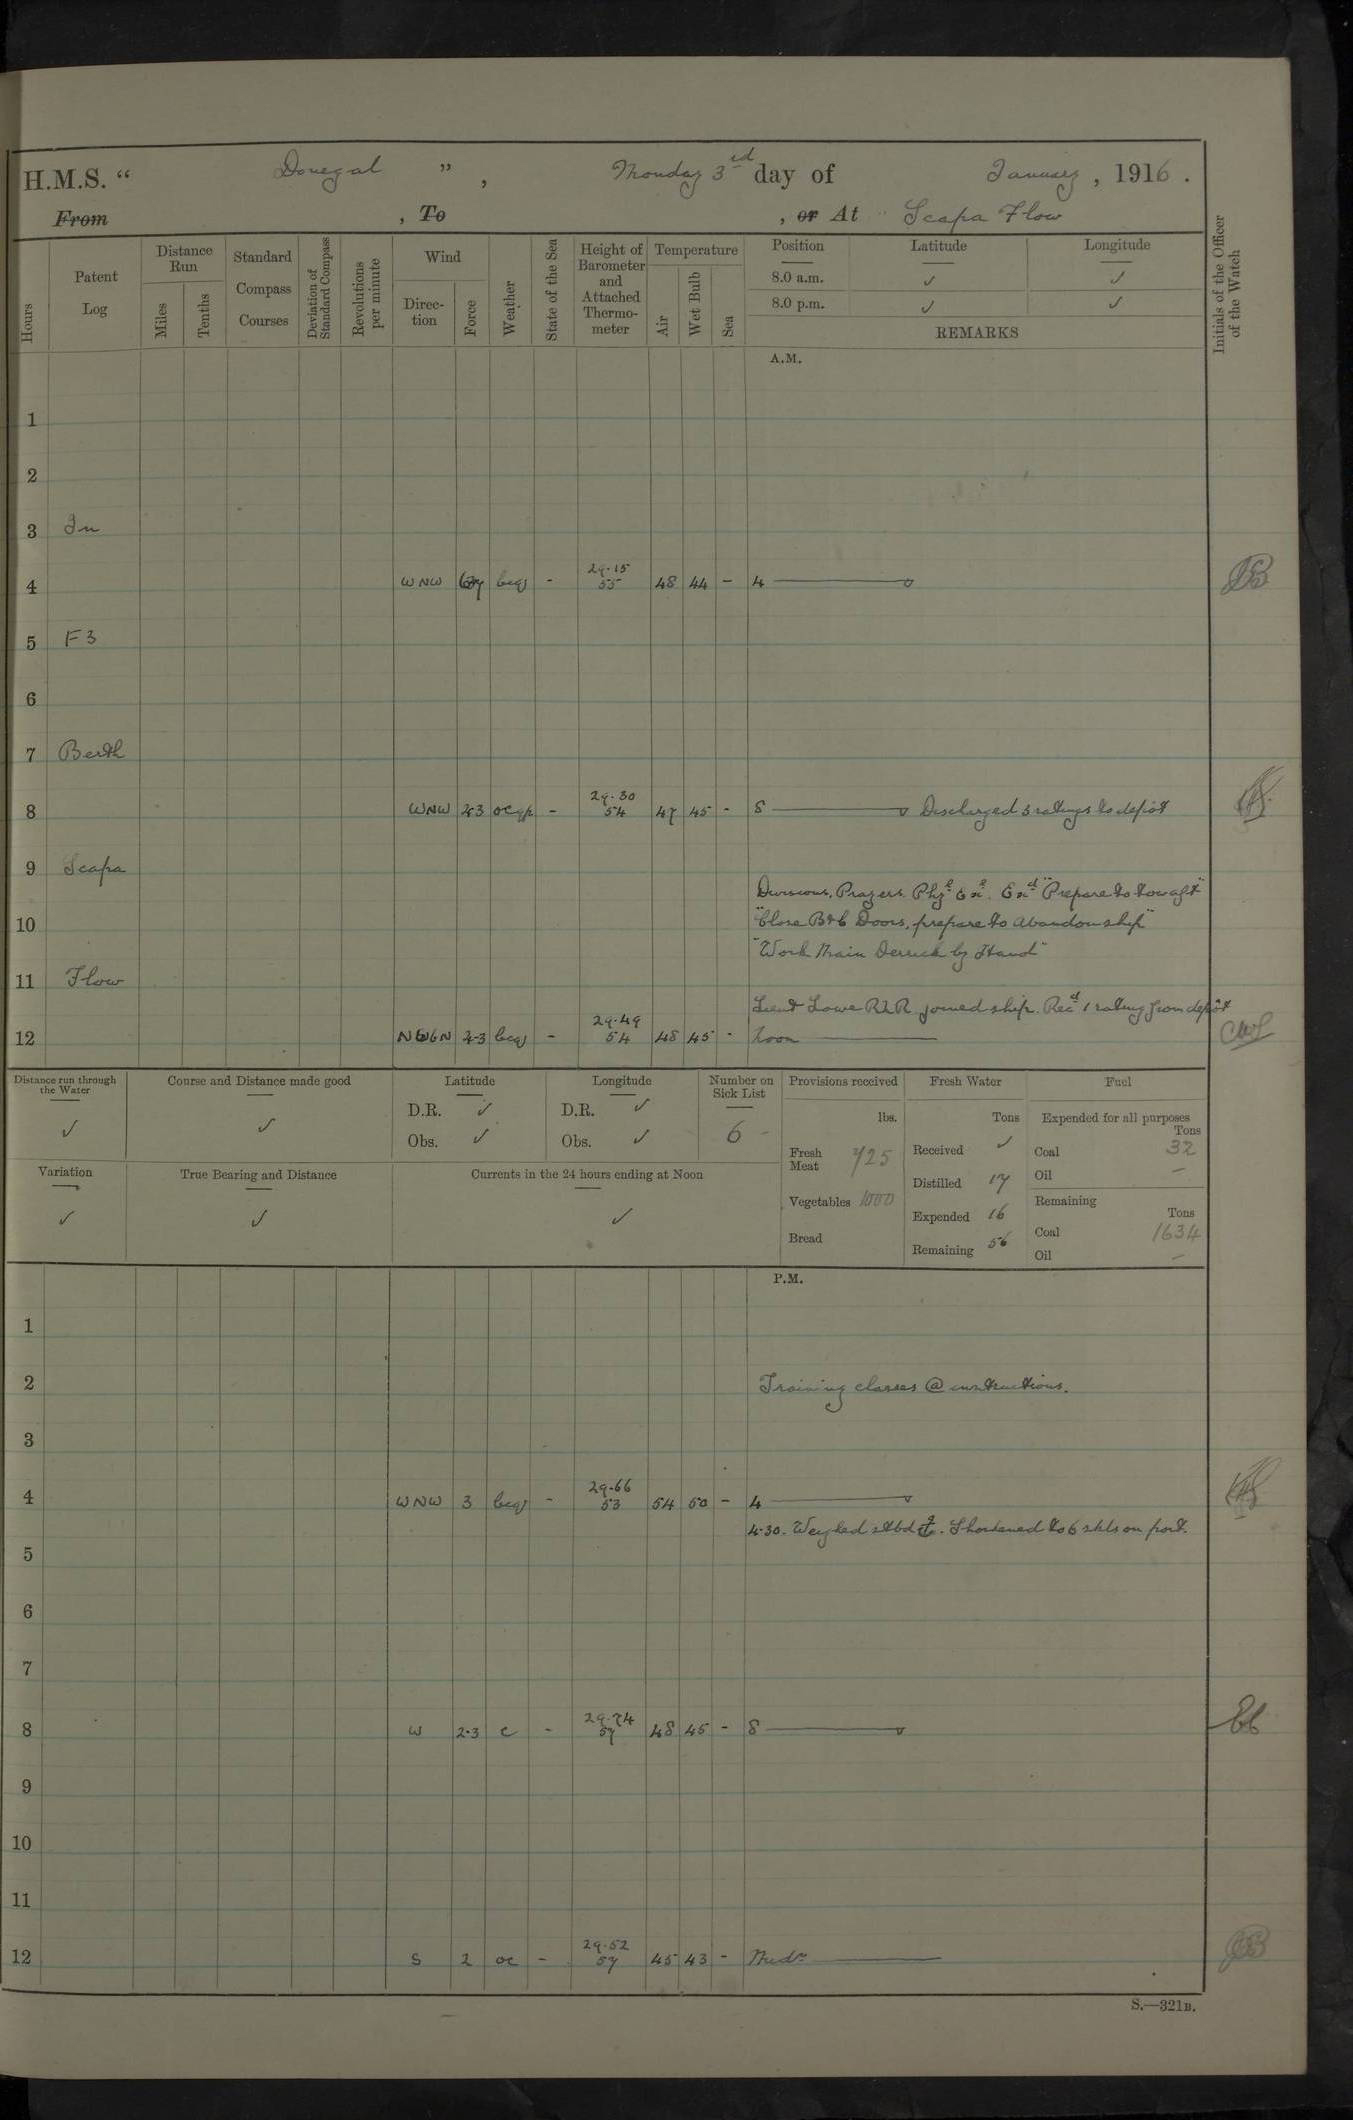 H.M.S. “ Donegal ”, Monday 3rd day of January, 1916.
From , To , or At Scapa Flow
Hours
Patent Log
Distance Run
Miles
Tenths
Standard Compass Courses
Deviation of Standard Compass
Revolutions per minute
Wind
Direc-tion
Force
Weather
State of the Sea
Height of Barometer and Attached Thermo-meter
Temperature
Air
Wet Bulb
Sea
Position Latitude Longitude
8.0 a.m. ✓ ✓
8.0 p.m. ✓ ✓
REMARKS
Initials of the Officer of the Watch
A.M.
1
2
3 In
29·15
4 WNW bcq - 55 48 44 - 4
5 F3
6
7 Berth
29·30
8 WNW 2·3 - 54 47 45 - 8 Discharged 3 ratings to depôt
9 Scapa
Divisions, Prayers. Phyl Exl. Exd "Prepare to tow aft"
10 "Close Doors, prepare to abandon ship"
"Work Main Derrick by Hand"
11 Flow
Lieut Lowe RNR joined ship. Recd 1 rating from depôt
29·49
12 2-3 bcq - 54 48 45 - Noon
Distance run through the Water ✓
Course and Distance made good ✓
Latitude
D.R. ✓
Obs. ✓
Longitude
D.R. ✓
Obs. ✓
Number on Sick List
6 -
Provisions received
lbs.
Fresh Meat 725
Vegetables 1000
Bread
Fresh Water
Tons
Received ✓
Distilled 17
Expended 16
Remaining 56
Fuel
Expended for all purposes
Tons
Coal 32
Oil -
Remaining
Tons
Coal 1634
Oil -
Variation ✓
True Bearing and Distance ✓
Currents in the 24 hours ending at Noon ✓
P.M.
1
2 Training classes @ instructions.
3
29·66
4 WNW 3 bcq - 53 54 50 - 4
4·30. Weighed stbd. Shortened to 6 shls on port.
5
6
7
29·74
8 W 2·3 c - 57 48 45 - 8
9
10
11
29·52
12 S 2 oc - 57 45 43 - Midt
S.—321B.